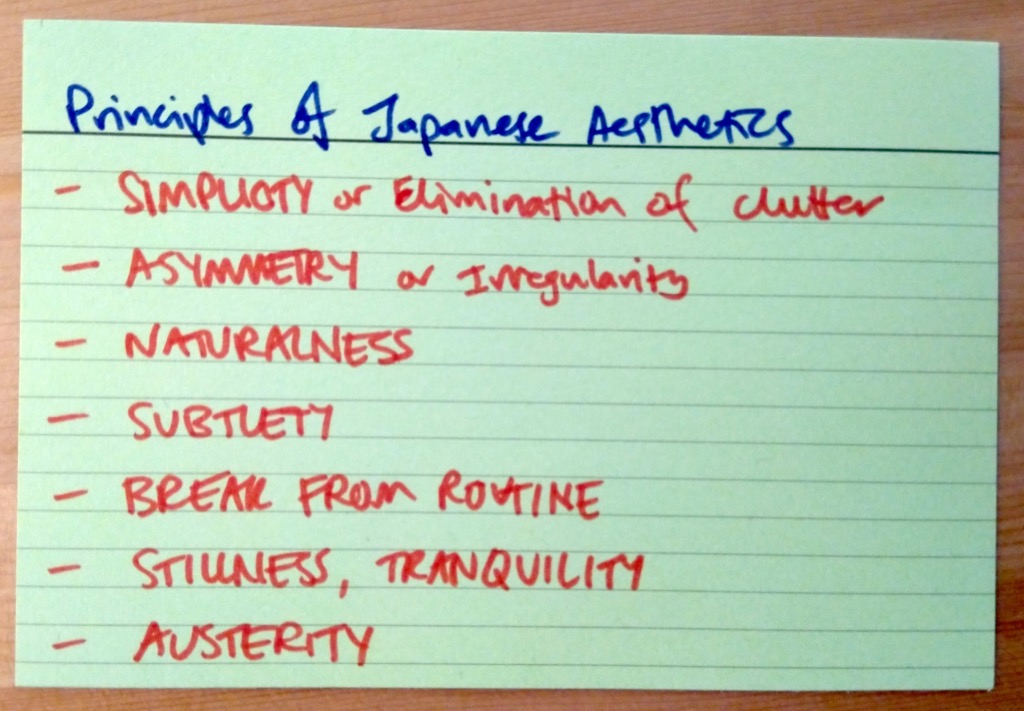 Principles of Japanese Aesthetics
- SIMPLICITY or Elimination of clutter
- ASYMMETRY or Irregularity
- NATURALNESS
- SUBTLETY
- BREAK FROM ROUTINE
- STILLNESS, TRANQUILITY
- AUSTERITY